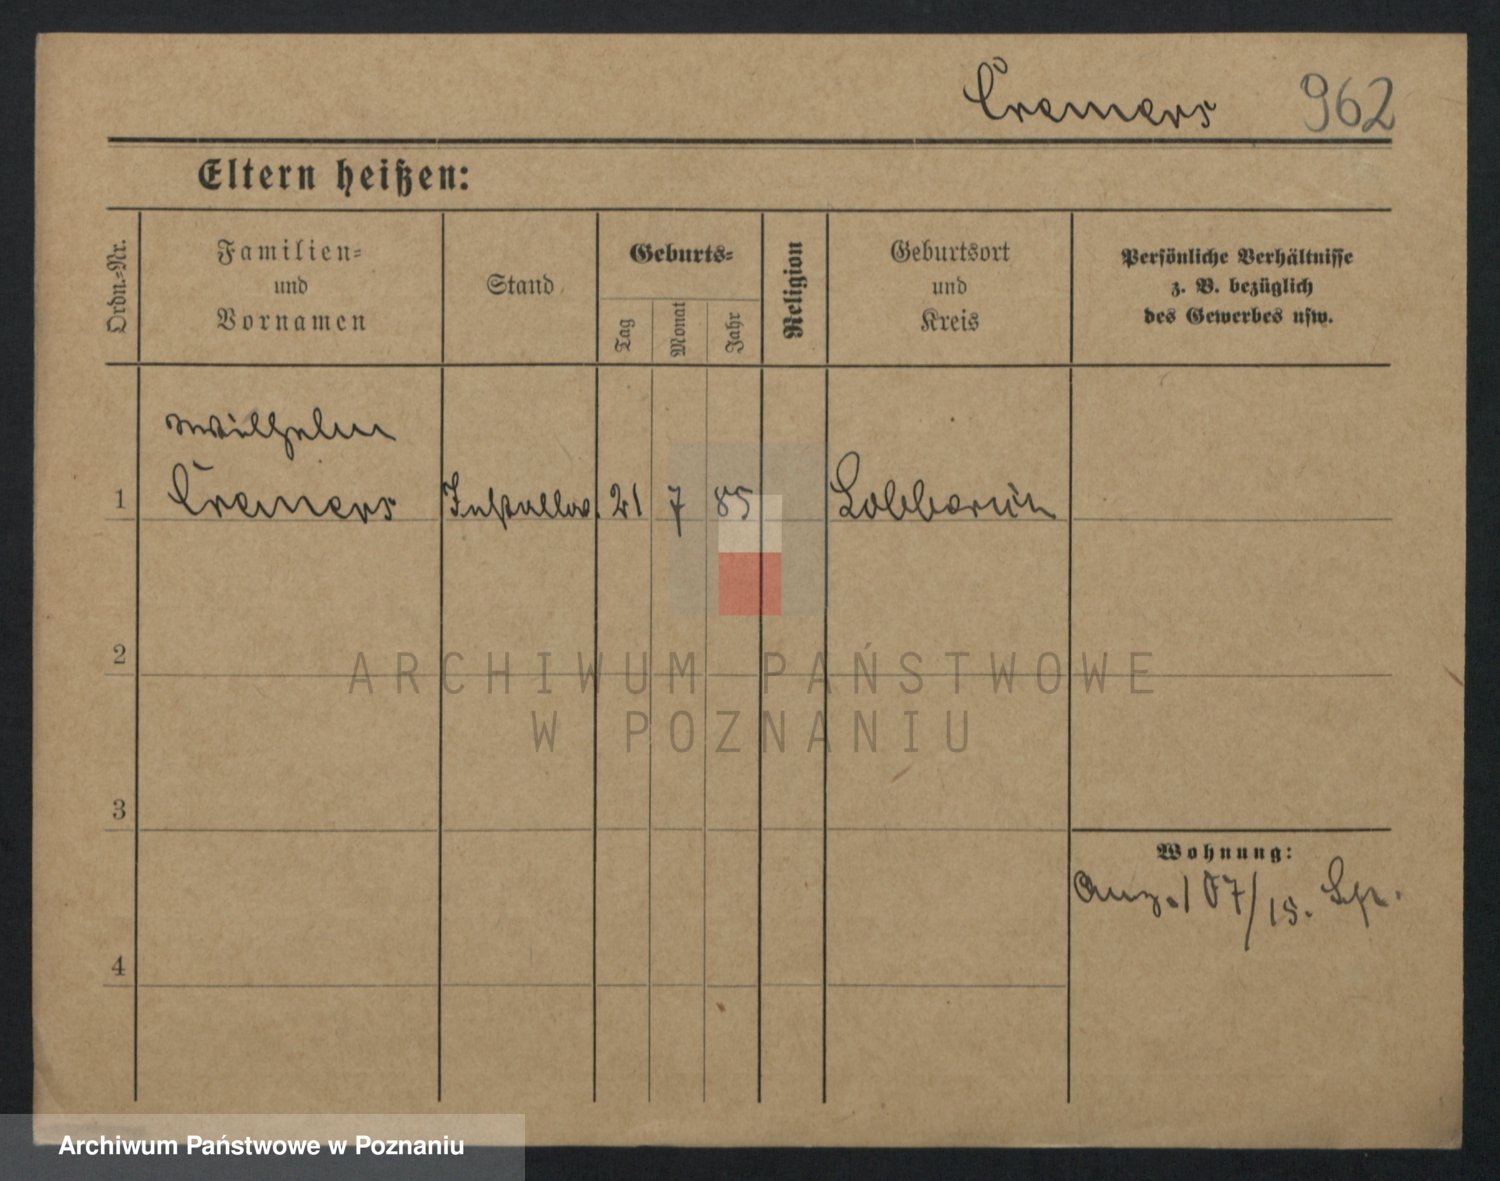 Cremers 962
Eltern heißen:
Ordn.=Nr.
Familien=
und
Vornamen
Stand
Geburts=
Tag
Monat
Jahr
Religion
Geburtsort
und
Kreis
Persönliche Verhältnisse
z. B. bezüglich
des Gewerbes usw.
Wilhelm
1 Cremers Installat. 21 7 85 Lobberich
2
ARCHIWUM PAŃSTWOWE
W POZNANIU
3
Wohnung:
107/15.
4
Archiwum Państwowe w Poznaniu